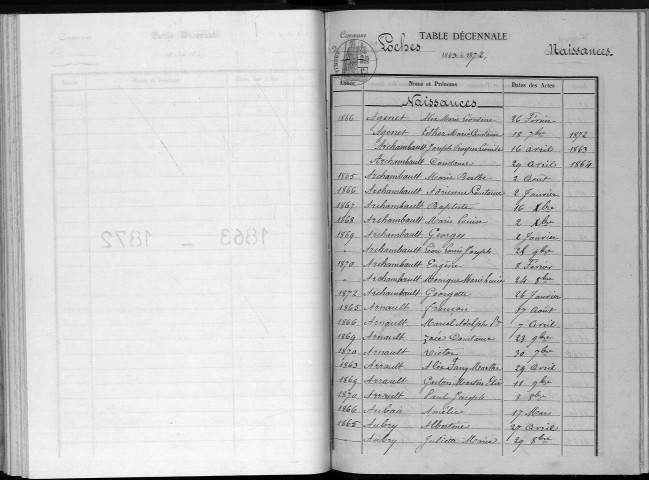 TABLE DÉCENNALE
Commune
Loches
1863 à 1872,
Naissances.
Année Noms et Prénoms Dates des Actes
Naissances
1866 Agenet Alix Marie 26 Février
Agenet Esther Marie Constance 18 7bre 1872
Archambault Joseph 16 avril 1863
Archambault Constance 29 avril 1864
1865 Archambault Marie Berthe 2 Août
1866 Archambault Adrienne 2 Janvier
1867 Archambault Baptiste 16 Xbre
1868 Archambault Marie Louise 2 Xbre
1869 Archambault Georges 2 Janvier
Archambault Léon Louis Joseph 28 9bre
1870 Archambault Eugène 8 Février
Archambault Monique Marie Louise 24 8bre
1872 Archambault Georgette 26 Janvier
1865 Arnault François 17 Août
1866 Arnault Marcel Adolphe 7 Avril
1869 Arnault Constance 23 9bre
1870 Arnault Victor 30 7bre
1863 Arrault Marthe 29 Avril
1869 Arrault Gaston 11 9bre
1870 Arrault Paul Joseph 8bre
1866 Aubais Amélie 17 Mars
1865 Aubry Albertine 27 Avril
Aubry Juliette Marie 29 8bre
1863 – 1872